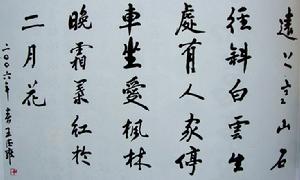 遠上寒山石
徑斜白雲生
處有人家停
車坐愛楓林
晚霜葉紅於
二月花
二〇〇六年